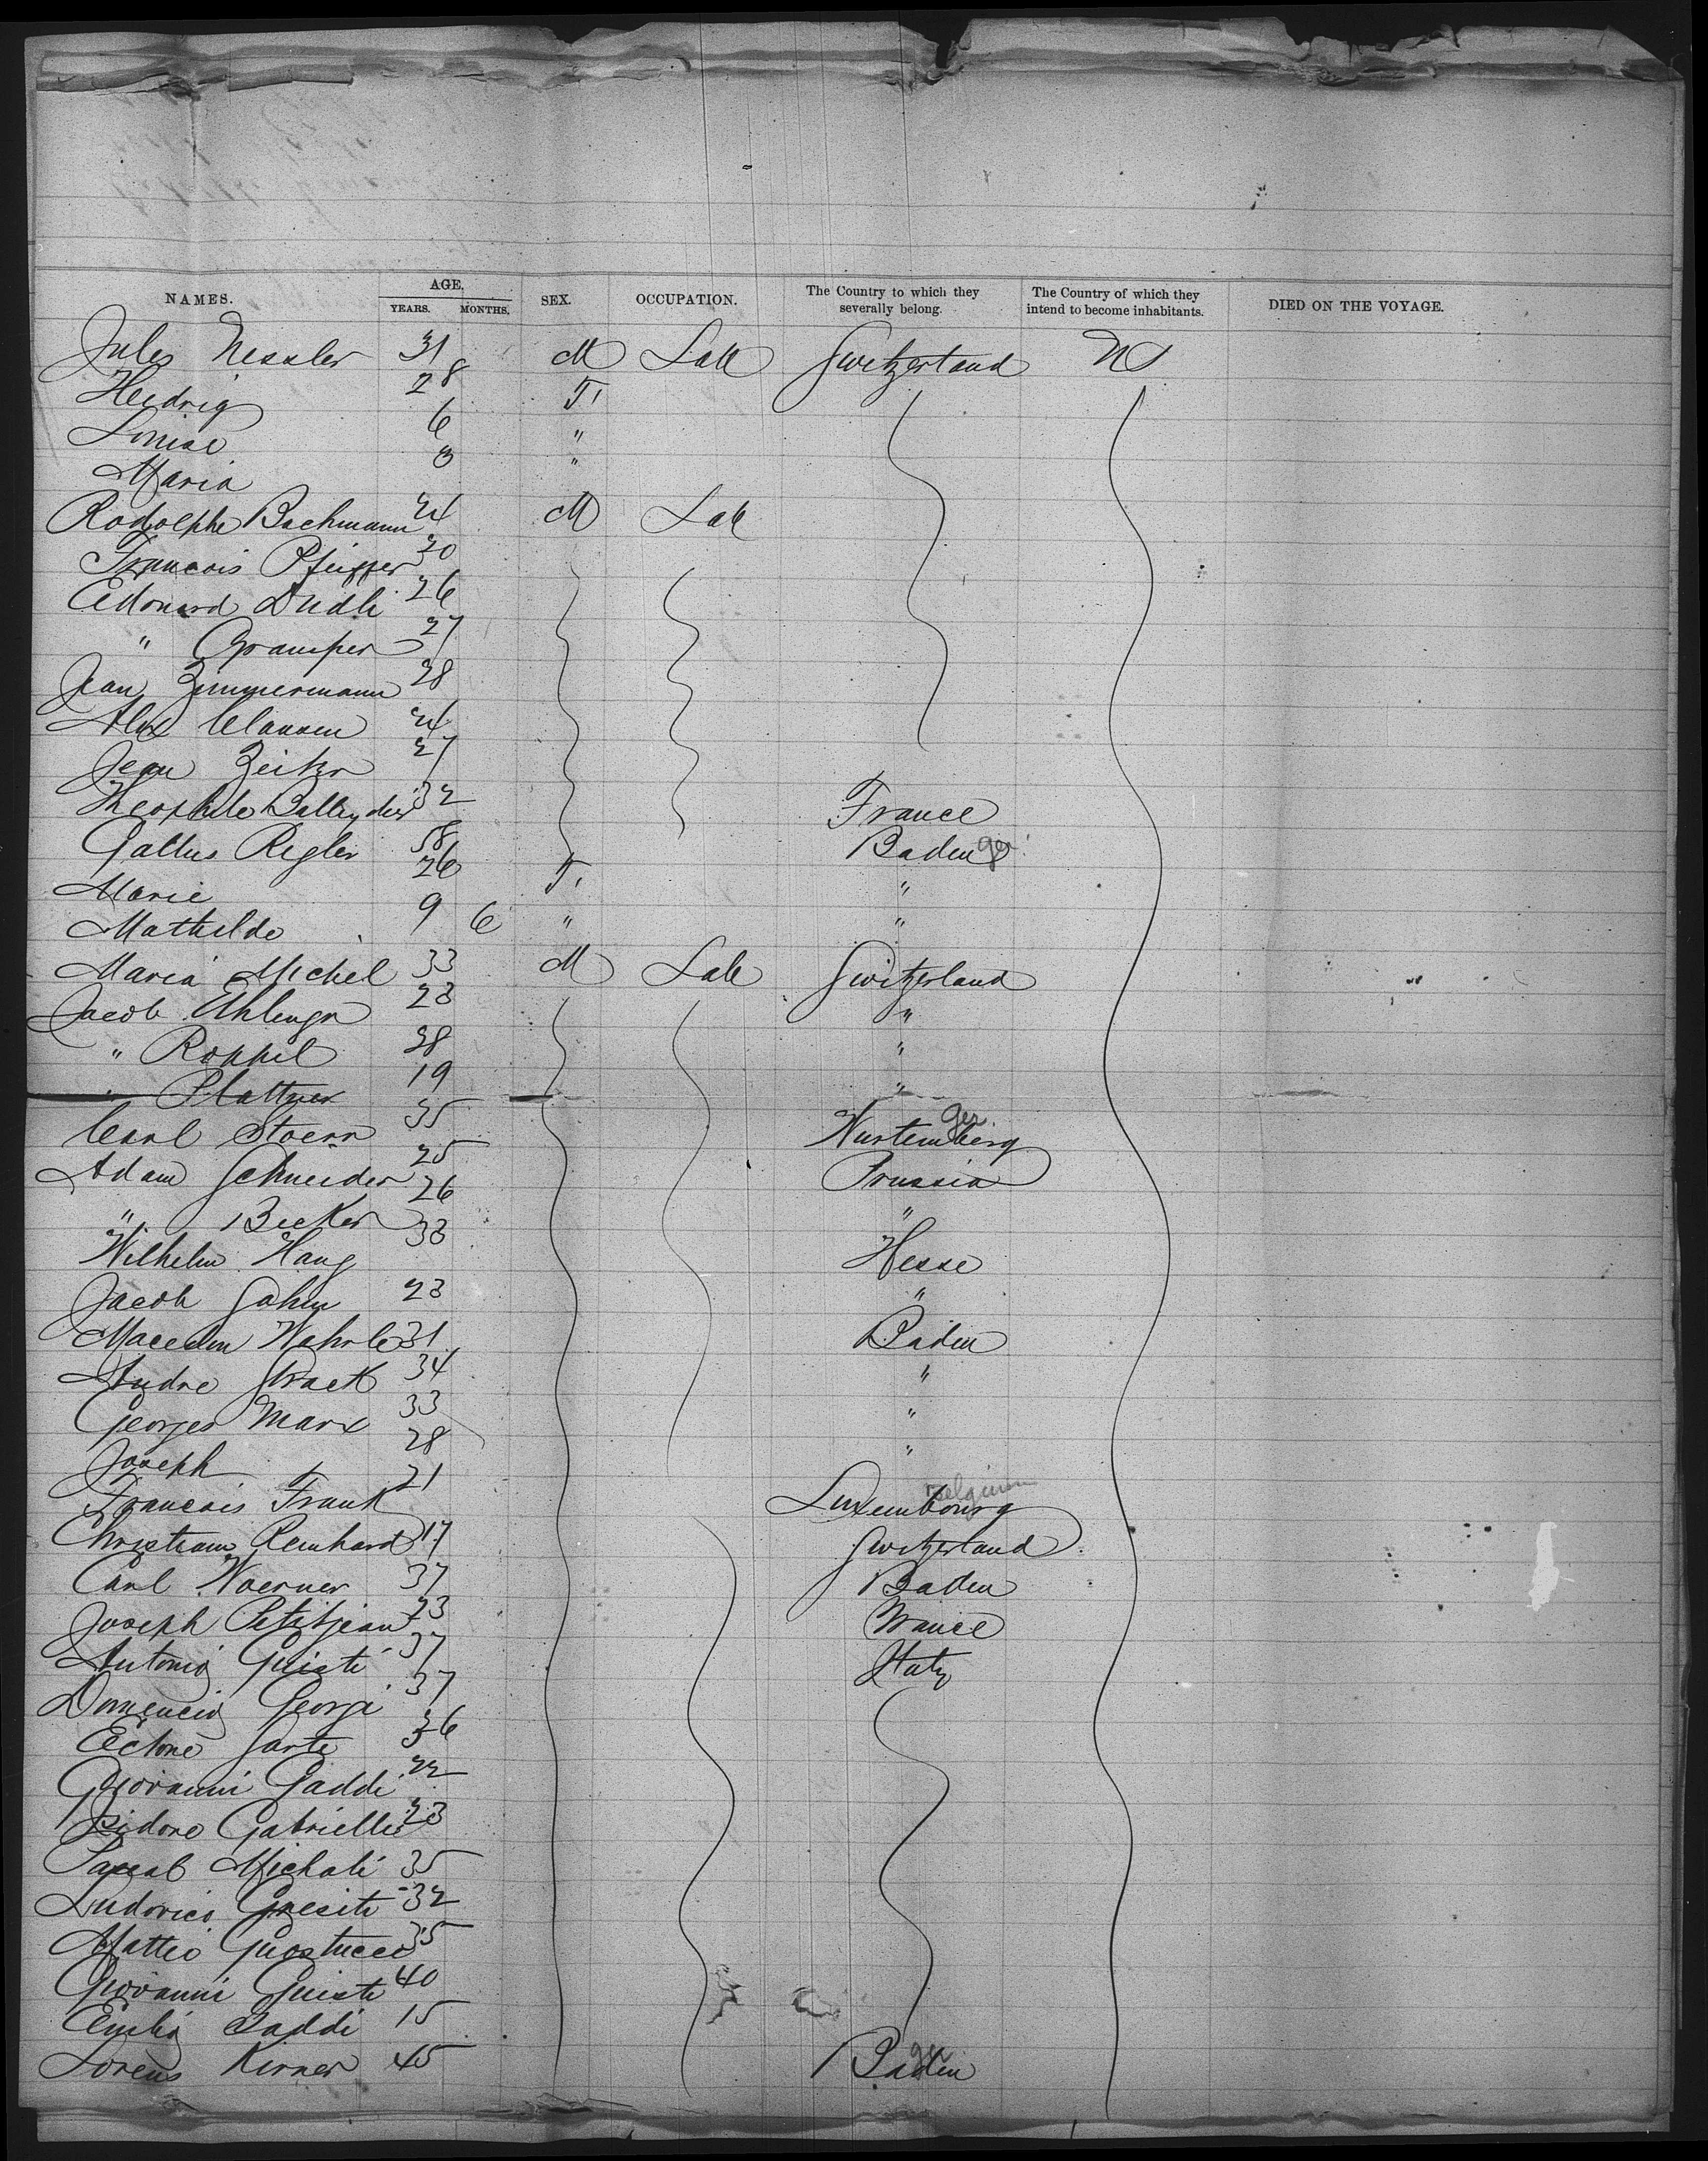 NAMES. AGE. YEARS. MONTHS. SEX. OCCUPATION. The Country to which they severally belong. The Country of which they intend to become inhabitants. DIED ON THE VOYAGE.
Jules Nessler 31 M Lab Switzerland US
Hedrig 28 F.
Louise 6 "
Maria 3 "
Rodolphe Bachmann 24 M Lab
Francois Pfeiffer 20
Edouard Dudli 26
" Grauper 27
Jean Zimmermann 28
Alex Clausen 24
Jean Zeiter 27
Theophile Balleydier 32 France
Gallus Regler 58 Baden ger
Marie 26 F. "
Mathilde 9 6 " "
Maria Michel 33 M Lab Switzerland
Jacob Ehlinger 23 "
" Roppel 28 "
" Plattner 19 "
Carl Stoerr 35 Wurtemberg ger
Adam Schneider 25 Prussia
" Becker 26 "
Wilhelm Haug 33 Hesse
Jacob Sahm 23 "
Wehrle 31 Baden
Andre Strack 34 "
Georges Marx 33 "
Joseph 28 "
Francois Frank 21 Luxembourg Belgium
Christiam Reinhard 17 Switzerland
Carl Woerner 37 Baden
Joseph Petitjean 23 France
Antonio Guisti 37 Italy
Domencio Georgi 37
Ectore Sarti 36
Giovanni Gaddi 22
Isidore Gabriellie 23
Pascal Michali 35
Ludovico 32
Matteo 35
Giovanni Guisti 40
Emilio Gaddi 15
Lorens Kirner 45 Baden ger